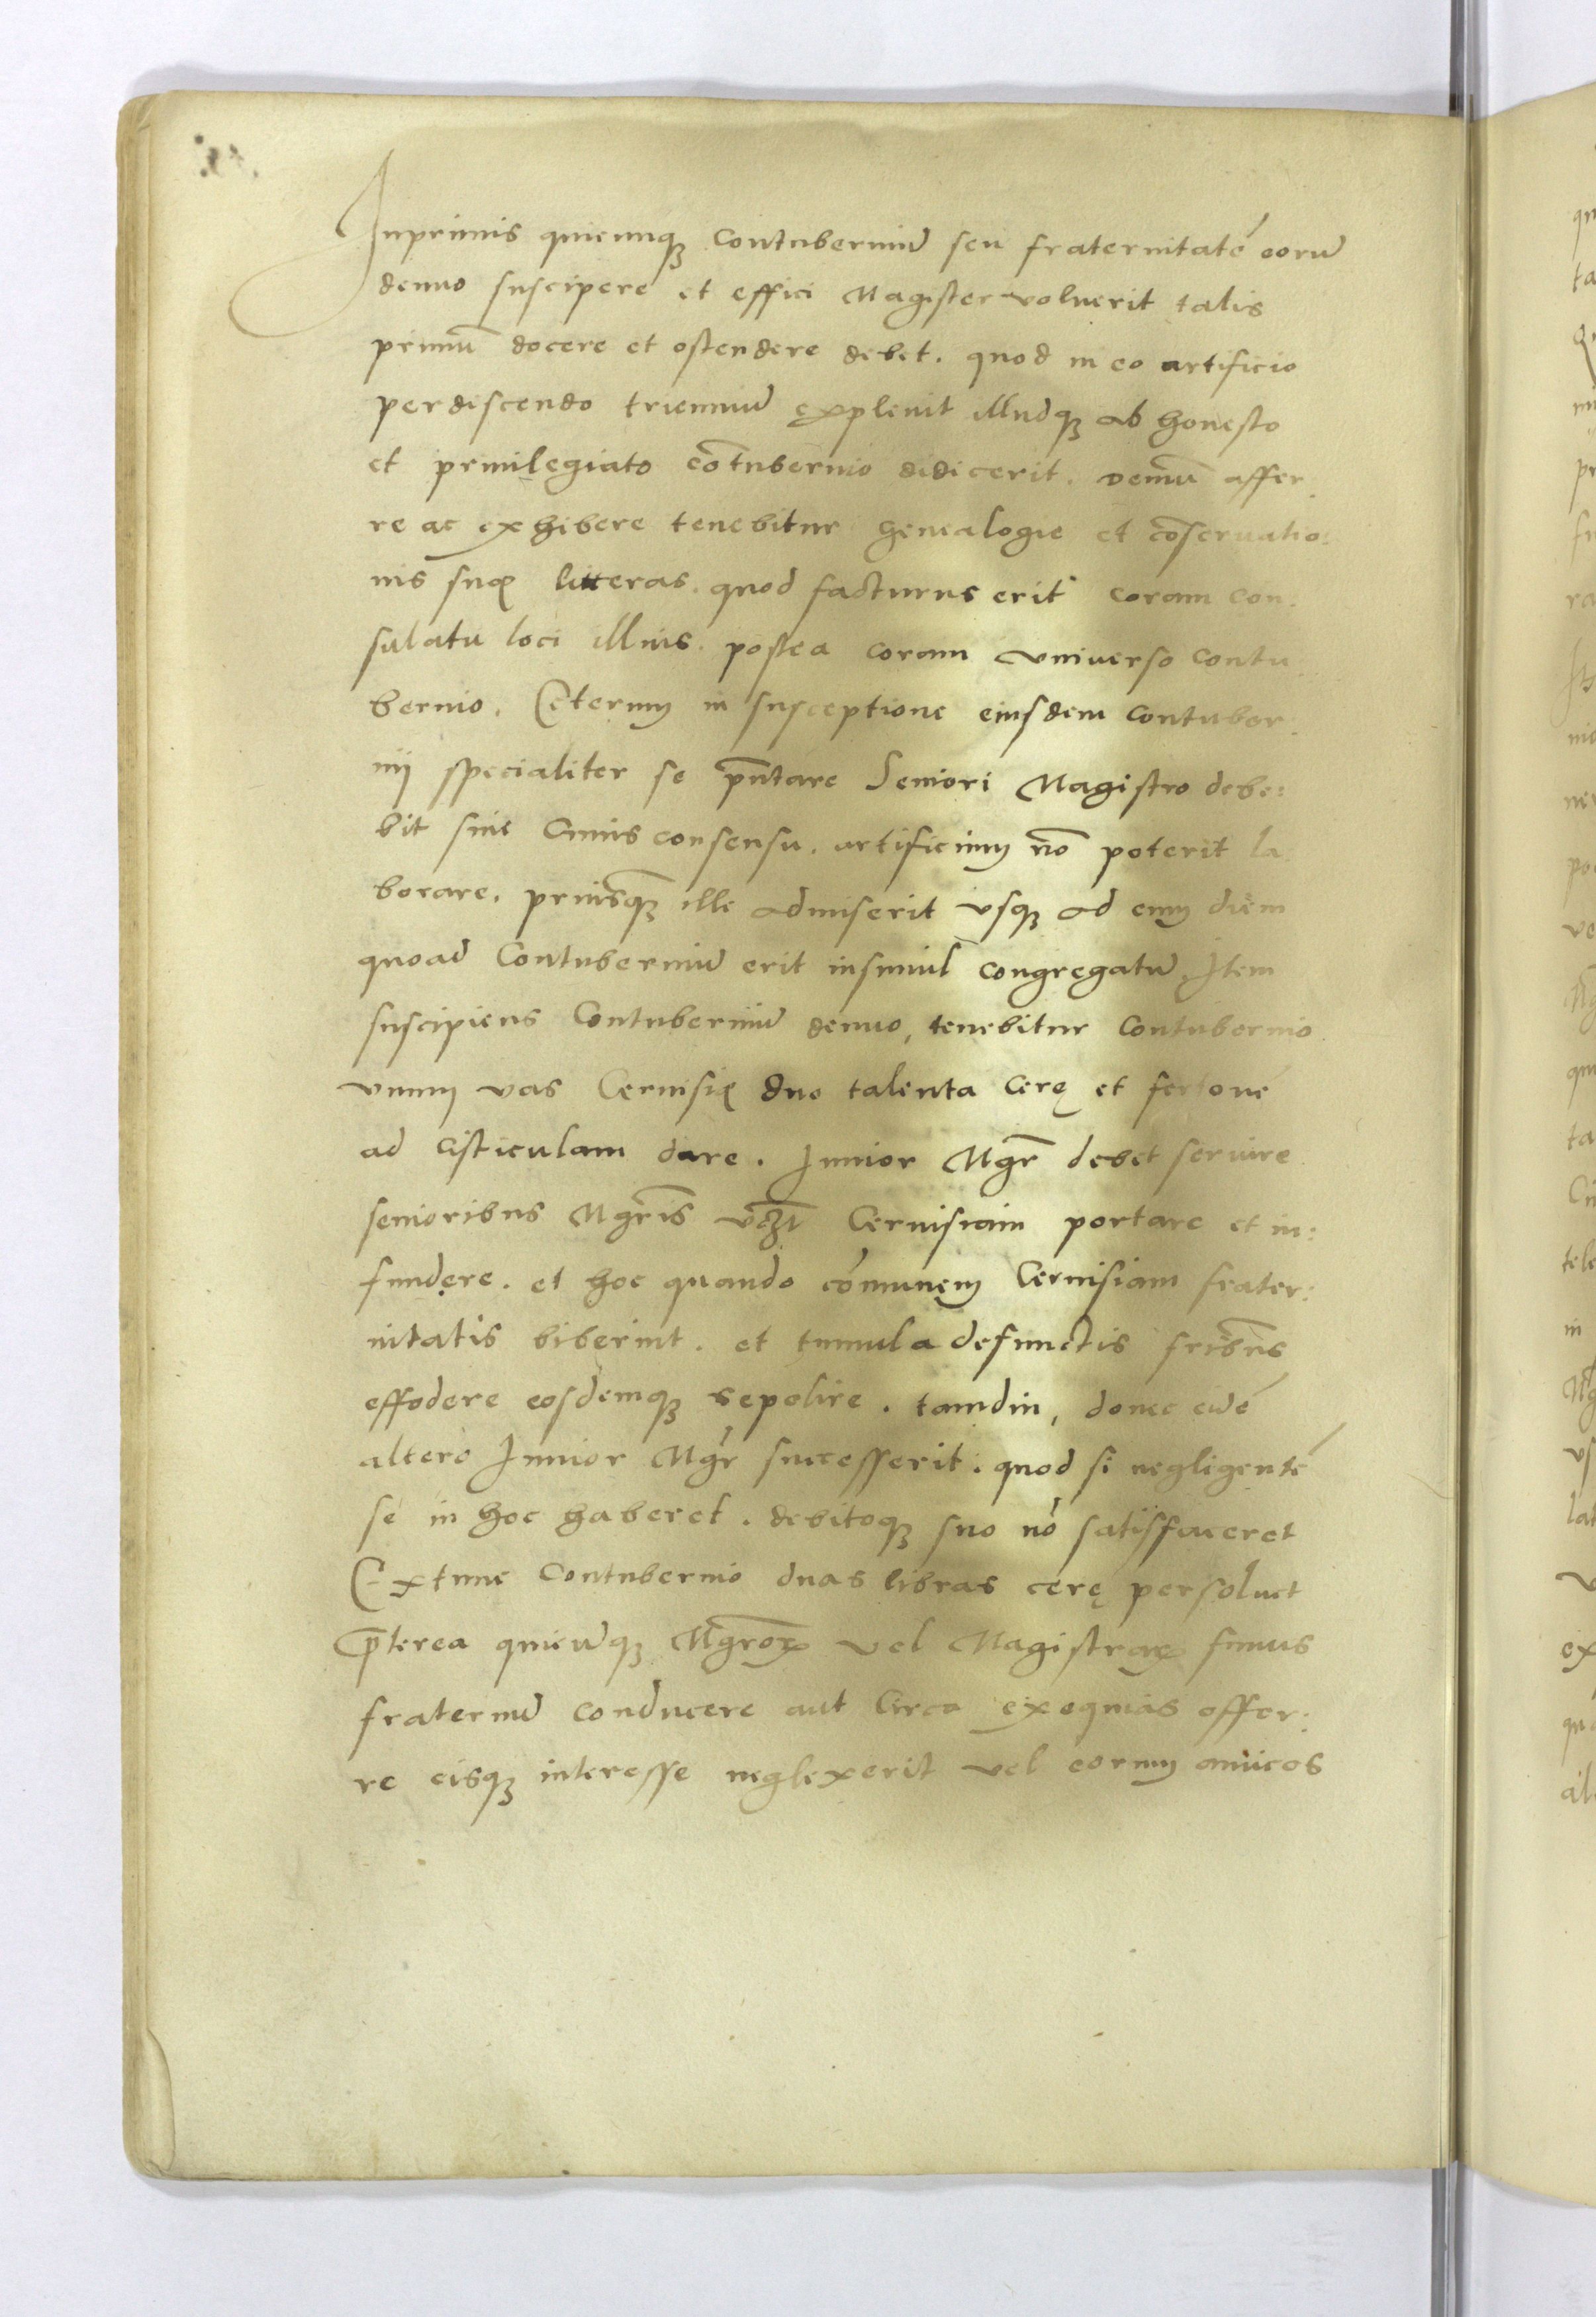 Inprimis quicunqꝫ Contuberniũ seu fraternitatẽ eorũ
denuo suscipere et effici Magister voluerit talis
primũ docere et ostendere debet. quod in eo artificio
perdiscendo trienniũ explevit illudqꝫ ab honesto
et privilegiato cõtubernio didicerit. Demũ affer
re ac exhibere tenebitur genealogie et cõservatio:
nis suę litteras. quod facturus erit coram con:
sulatu loci illius. postea coram vniverso contu
bernio. Ceterum in susceptione eiusdem contuber:
nij specialiter se pñtare Seniori Magistro debe:
bit sine Cuius consensu. artificium nõ poterit la:
borare. priusqꝫ ille admiserit vsqꝫ ad eum diem
quoad Contuberniũ erit insimul congregatũ. Item
suscipiens Contuberniũ denuo, tenebitur Contubernio
vnum vas Cervisię duo talenta Cerę et fertonẽ
ad Cisticulam dare. Iunior Mgr̃ debet servire
senioribus Mgr̃is vꝫt Cervisiam portare et in:
fundere. et hoc quando cõmunem Cervisiam frater:
nitatis biberint. et tumula defunctis fribus
effodere eosdemqꝫ sepelire. tamdiu, donec eidẽ
altero Iunior Mgr̃ successerit. quod si negligentẽ
se in hoc haberet. debitoqꝫ suo nõ satisfaceret
Extunc Contubernio duas libras cerę persoluet
P̃terea quicũqꝫ Mgr̃oꝝ vel Magistraꝝ funus
fraternũ conducere aut Circa exequias offer:
re eisqꝫ interesse neglexerit vel eorum amicos